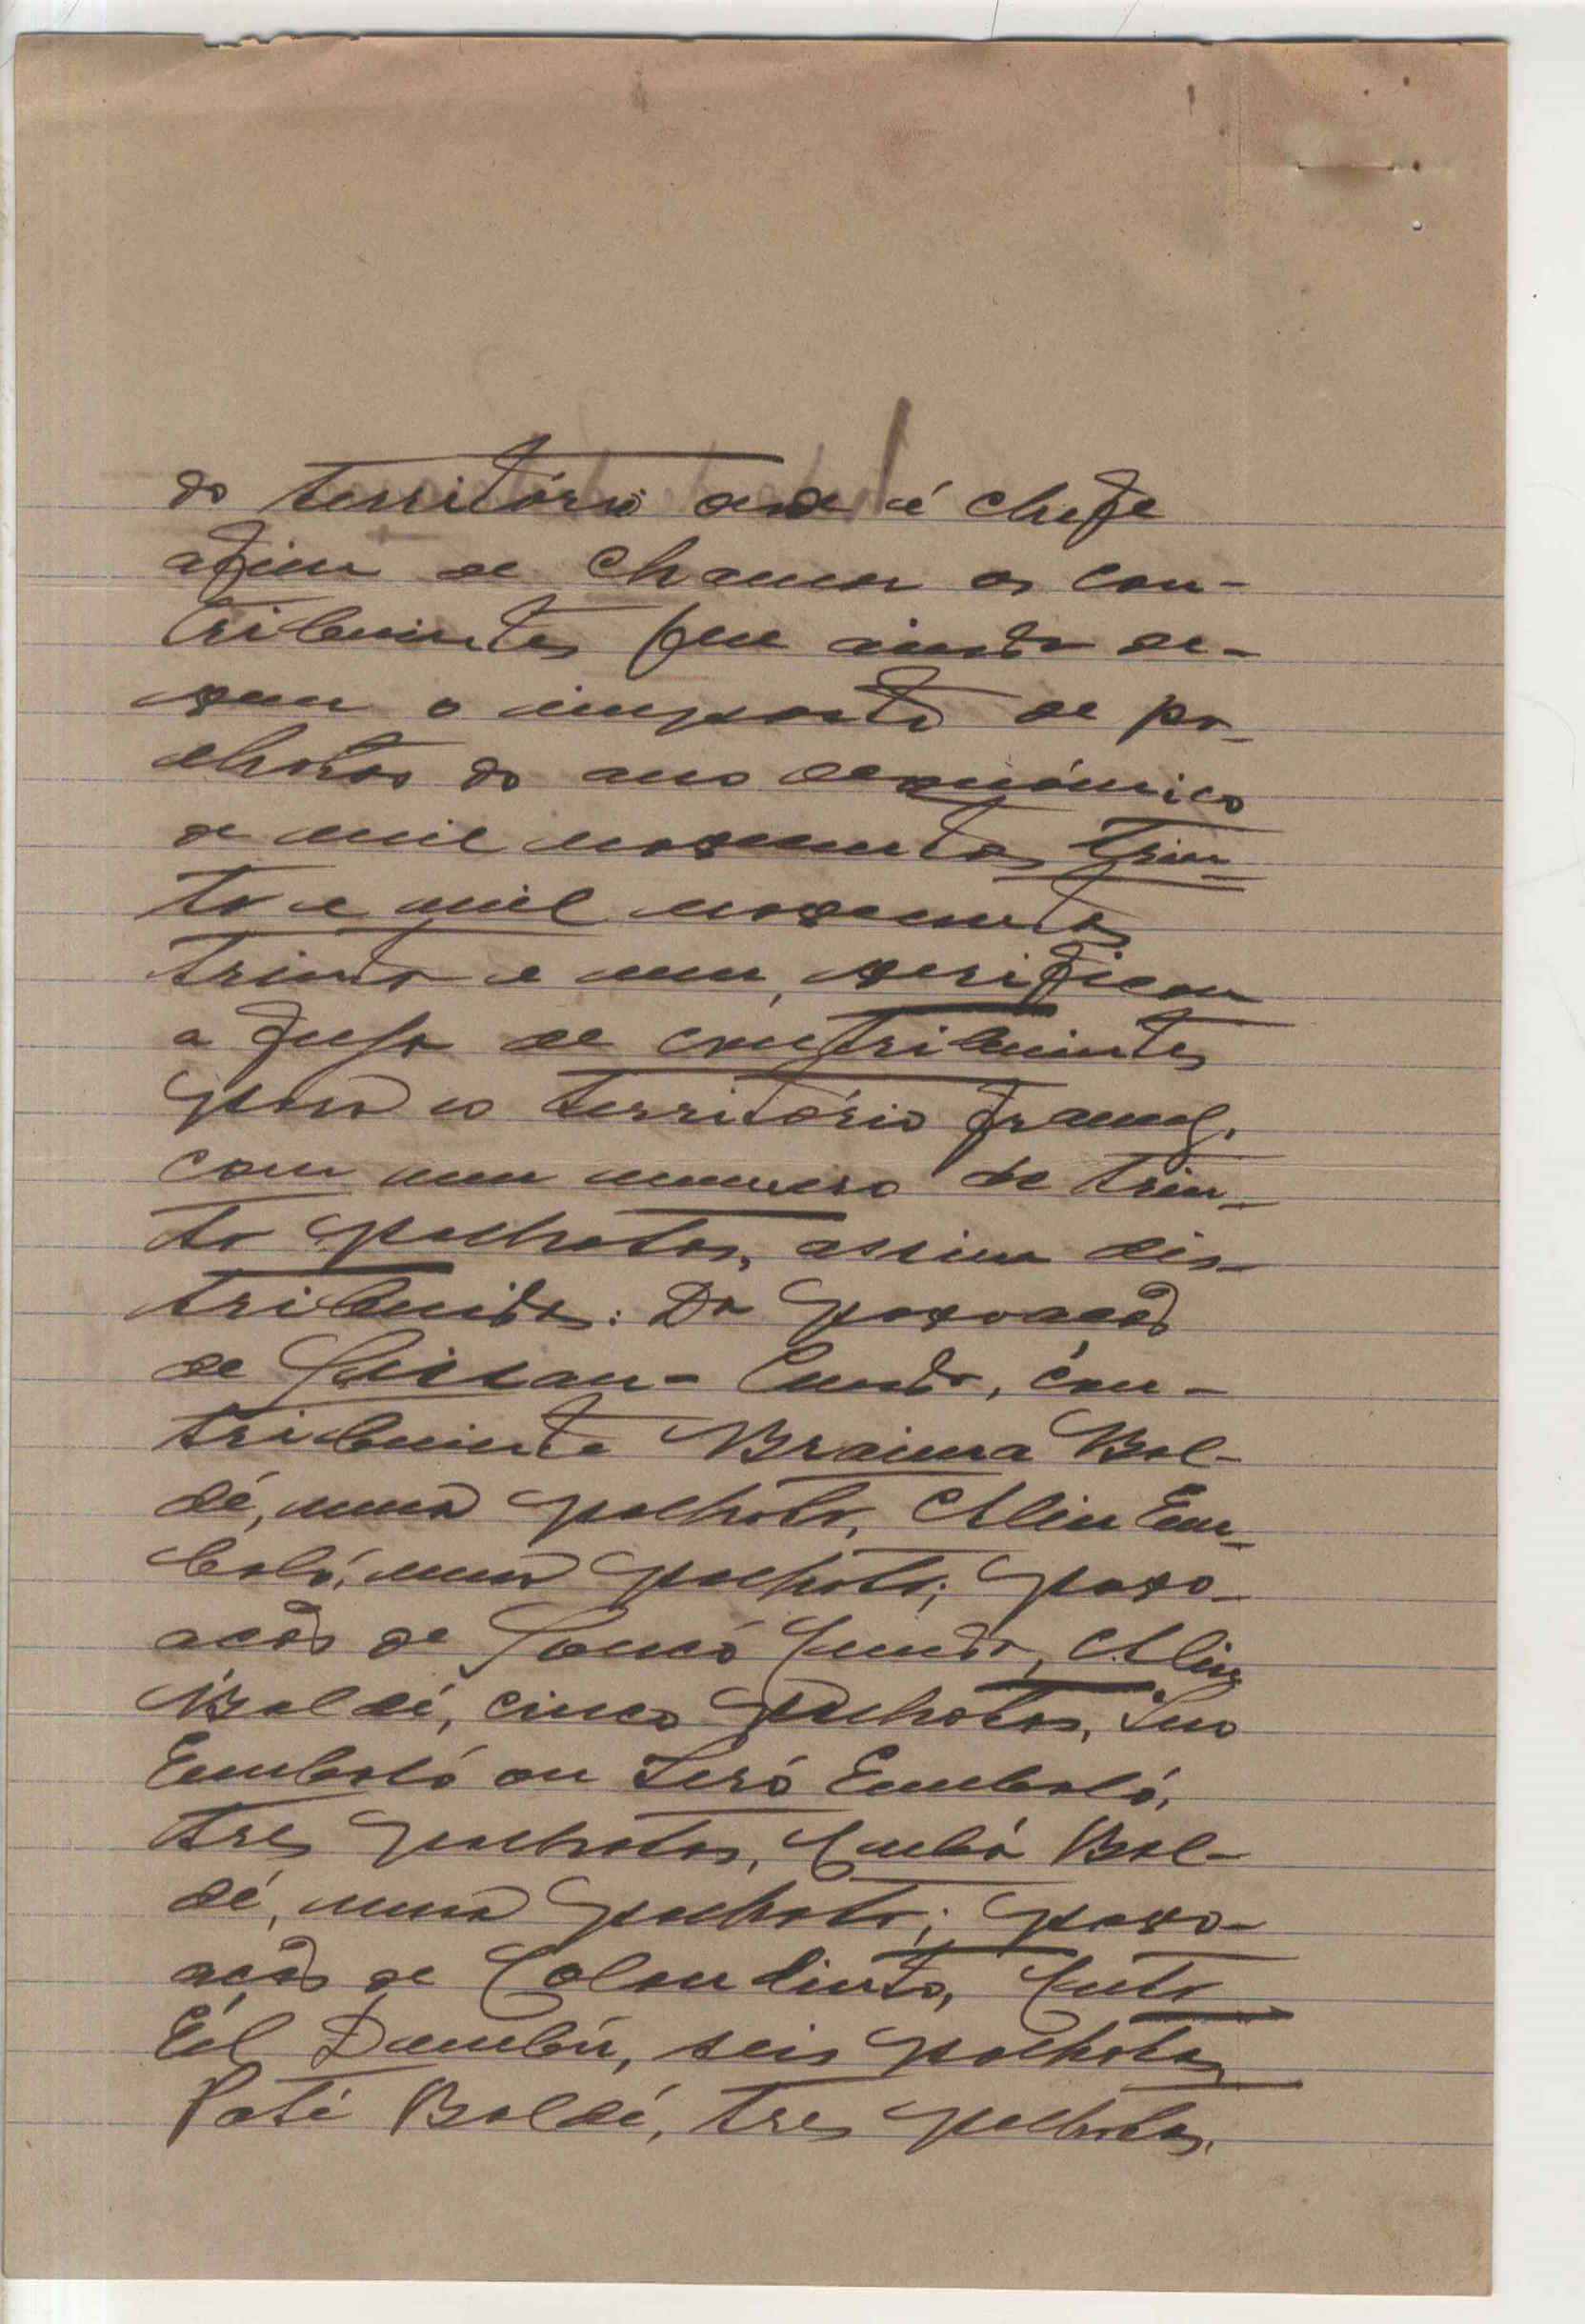 do território onde é chefe
afim de chamar os con-
tribuintes que ainda de-
vem o imposto de pa-
lhotas do ano económico
de mil novecentos trin-
ta e mil novecentos
trinta e um, verificou
a fuga de contribuintes
para o território francês,
com um numero de trin-
ta palhotas, assim dis-
tribuidas: Da povoação
de Sissau-Cunda, con-
tribuinte Braima Bal-
dé, uma palhota, Aliu Em-
baló, uma palhota; povo-
ação de Soncó Cunda, Aliu
Baldé, cinco palhotas,
Embaló ou Seró Embaló,
tres palhotas, Cumbá Bal-
dé, uma palhota; povo-
ação de
Dembú, seis palhotas,
Paté Baldé, tres palhotas,